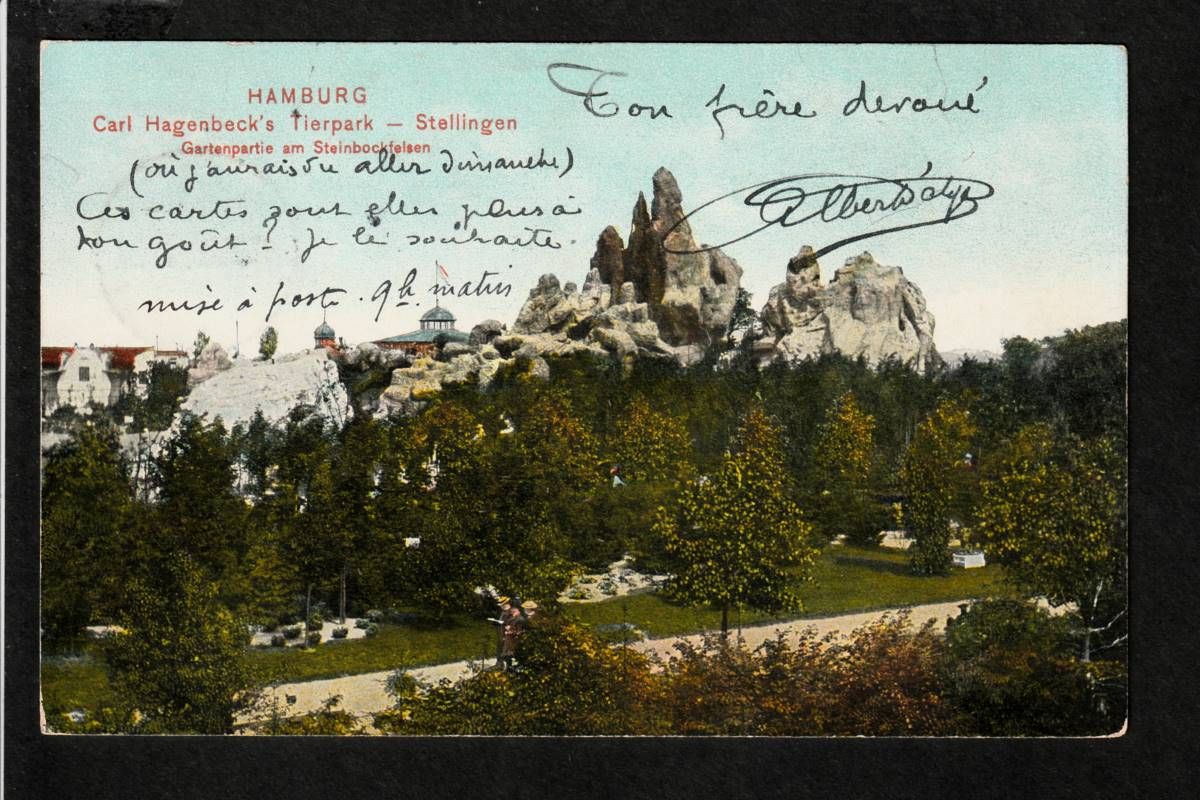 HAMBURG
Carl Hagenbeck's Tierpark – Stellingen
Gartenpartie am Steinbockfelsen
(où j'aurais du aller dimanche)
Ces cartes sont elles plus à
ton goût? Je le souhaite.
mise à poste. 9h matin
Ton frère devoué
Albert